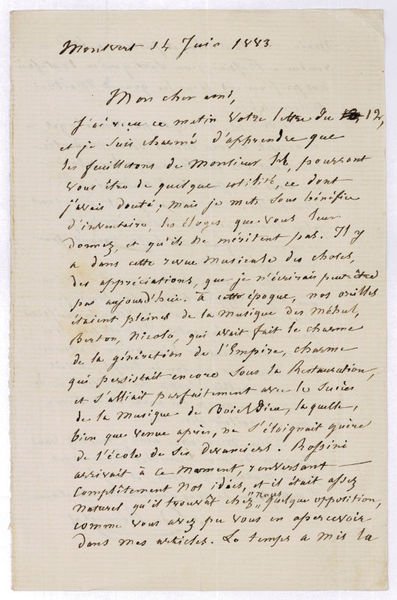 Montvert 14 Juin 1883
Mon cher ami,
J'ai reçu ce matin votre lettre du 12,
et je suis charmé d'apprendre que
les feuilletons de Monsieur pourront
vous être de quelque utilité, ce dont
j'avais douté; mais je mets sous bénéfice
d'inventaire, les éloges que vous leur
donnez, et qu'ils ne méritent pas. Il y
a dans cette revue musicale des choses,
des appréciations, que je n'écrirais peut être
pas aujourd'hui. à cette époque, nos oreilles
étaient pleines de la musique des Méhul,
Berton, Nicolo, qui avait fait le charme
de la génération de l'Empire, charme
qui persistait encore sous la Restauration,
et s'alliait parfaitement avec le succès
de la musique de Boieldieu, laquelle,
bien que venue après, ne s'éloignait guère
de l'école de ses devanciers. Rossini
arrivait à ce moment, renversant
complètement nos idées, et il était assez
naturel qu'il trouvât chez nous quelque opposition,
comme vous avez pu vous en apercevoir
dans mes articles. Le temps a mis la